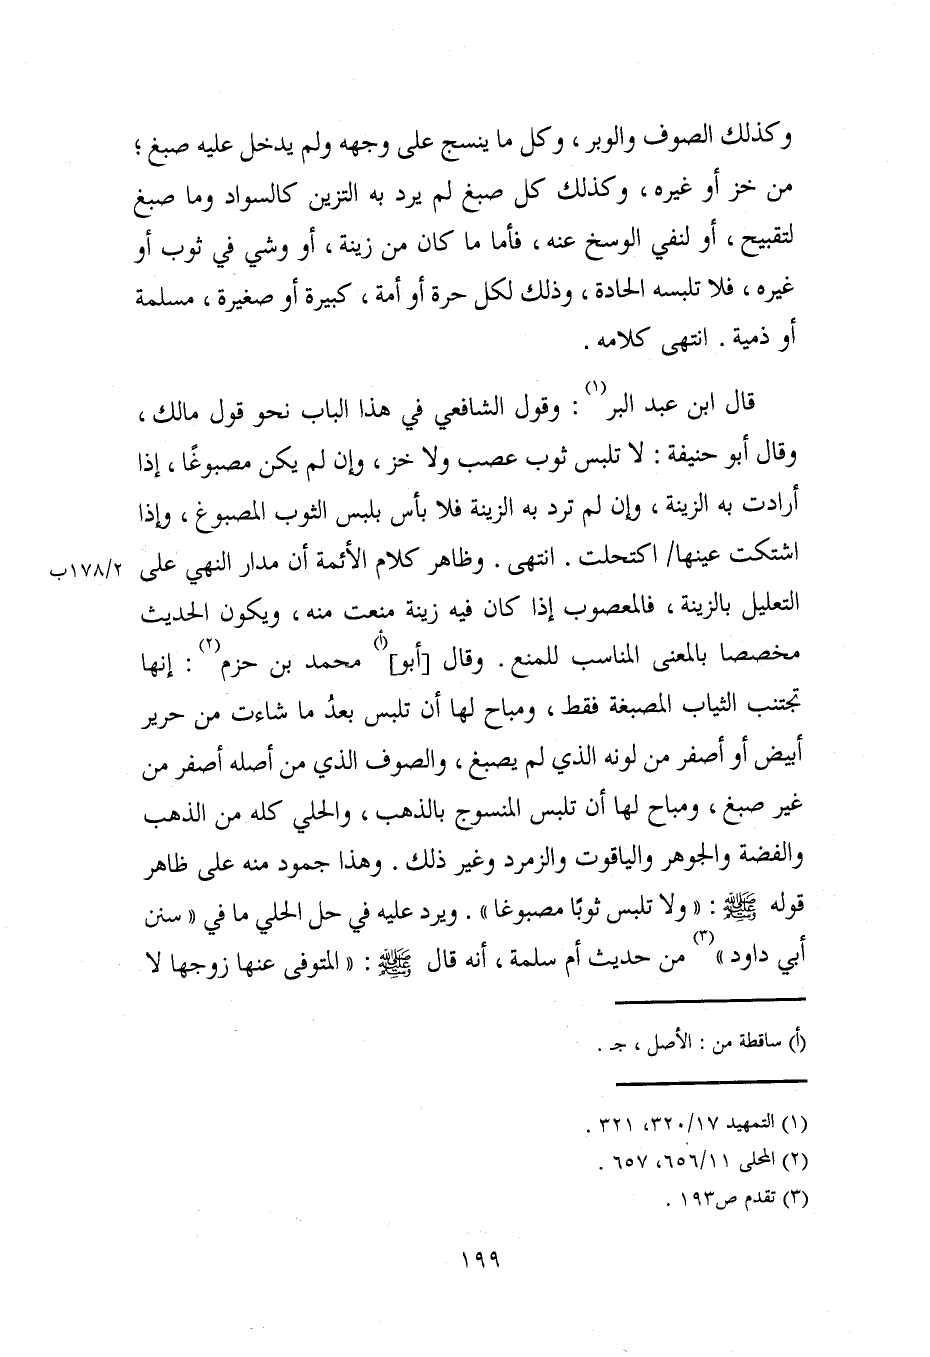 وكذلك الصوف والوبر ، وكل ما ينسج على وجهه ولم يدخل عليه صبغ ؛
من خز أو غيره ، وكذلك كل صبغ لم يرد به التزين كالسواد وما صبغ
لتقبيح ، أو لنفي الوسخ عنه ، فأما ما كان من زينة ، أو وشي في ثوب أو
غيره ، فلا تلبسه الحادة ، وذلك لكل حرة أو أمة ، كبيرة أو صغيرة ، مسلمة
أو ذمية . انتهى كلامه .
قال ابن عبد البر(١) : وقول الشافعي في هذا الباب نحو قول مالك ،
وقال أبو حنيفة : لا تلبس ثوب عصب ولا خز ، وإن لم يكن مصبوغًا ، إذا
أرادت به الزينة ، وإن لم ترد به الزينة فلا بأس بلبس الثوب المصبوغ ، وإذا
اشتكت عينها/ اكتحلت . انتهى . وظاهر كلام الأئمة أن مدار النهي على ١٧٨/٢ب
التعليل بالزينة ، فالمعصوب إذا كان فيه زينة منعت منه ، ويكون الحديث
مخصصا بالمعنى المناسب للمنع . وقال [أبو](أ) محمد بن حزم(٢) : إنها
تجتنب الثياب المصبغة فقط ، ومباح لها أن تلبس بعدُ ما شاءت من حرير
أبيض أو أصفر من لونه الذي لم يصبغ ، والصوف الذي من أصله أصفر من
غير صبغ ، ومباح لها أن تلبس المنسوج بالذهب ، والحلي كله من الذهب
والفضة والجوهر والياقوت والزمرد وغير ذلك . وهذا جمود منه على ظاهر
قوله ﷺ : « ولا تلبس ثوبًا مصبوغا» . ويرد عليه في حل الحلي ما في « سنن
أبي داود »(٣) من حديث أم سلمة ، أنه قال ﷺ : « المتوفى عنها زوجها لا
(أ) ساقطة من : الأصل ، جـ .
(١) التمهيد ٣٢٠/١٧، ٣٢١ .
(٢) المحلى ٦٥٦/١١، ٦٥٧ .
(٣) تقدم ص١٩٣ .
١٩٩